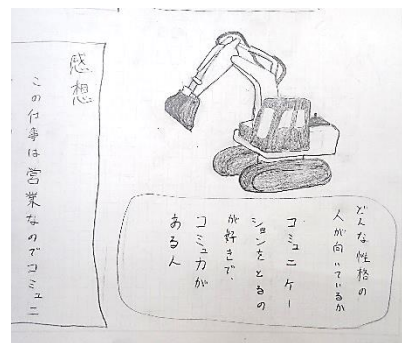 どんな性格の
人が向いているか
コミュニケー
ションをとるの
が好きで、
コミュ力が
ある人
感想
この仕事は営業なのでコミュニ